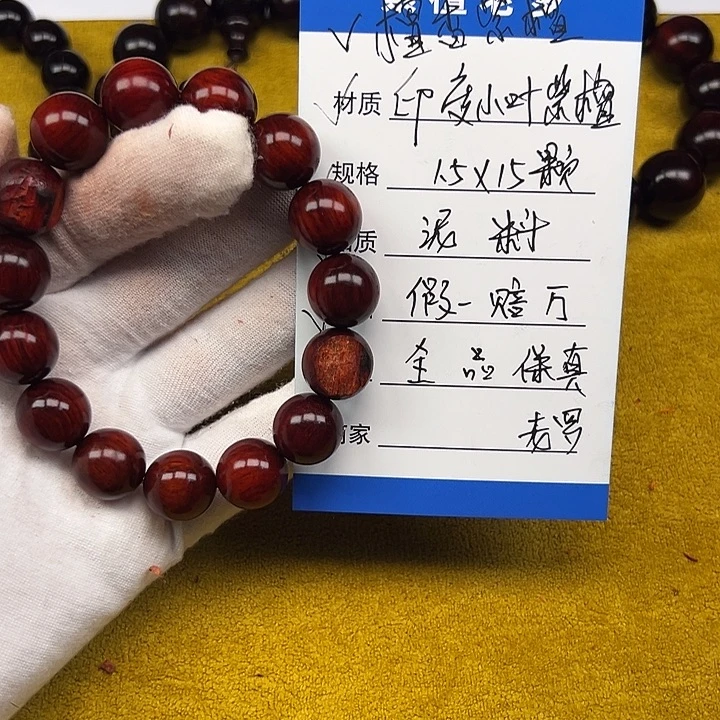 檀香紫檀
材质 印度小叶紫檀
规格 1.5X15颗
质 泥料
假一赔万
全品保真
家 老罗